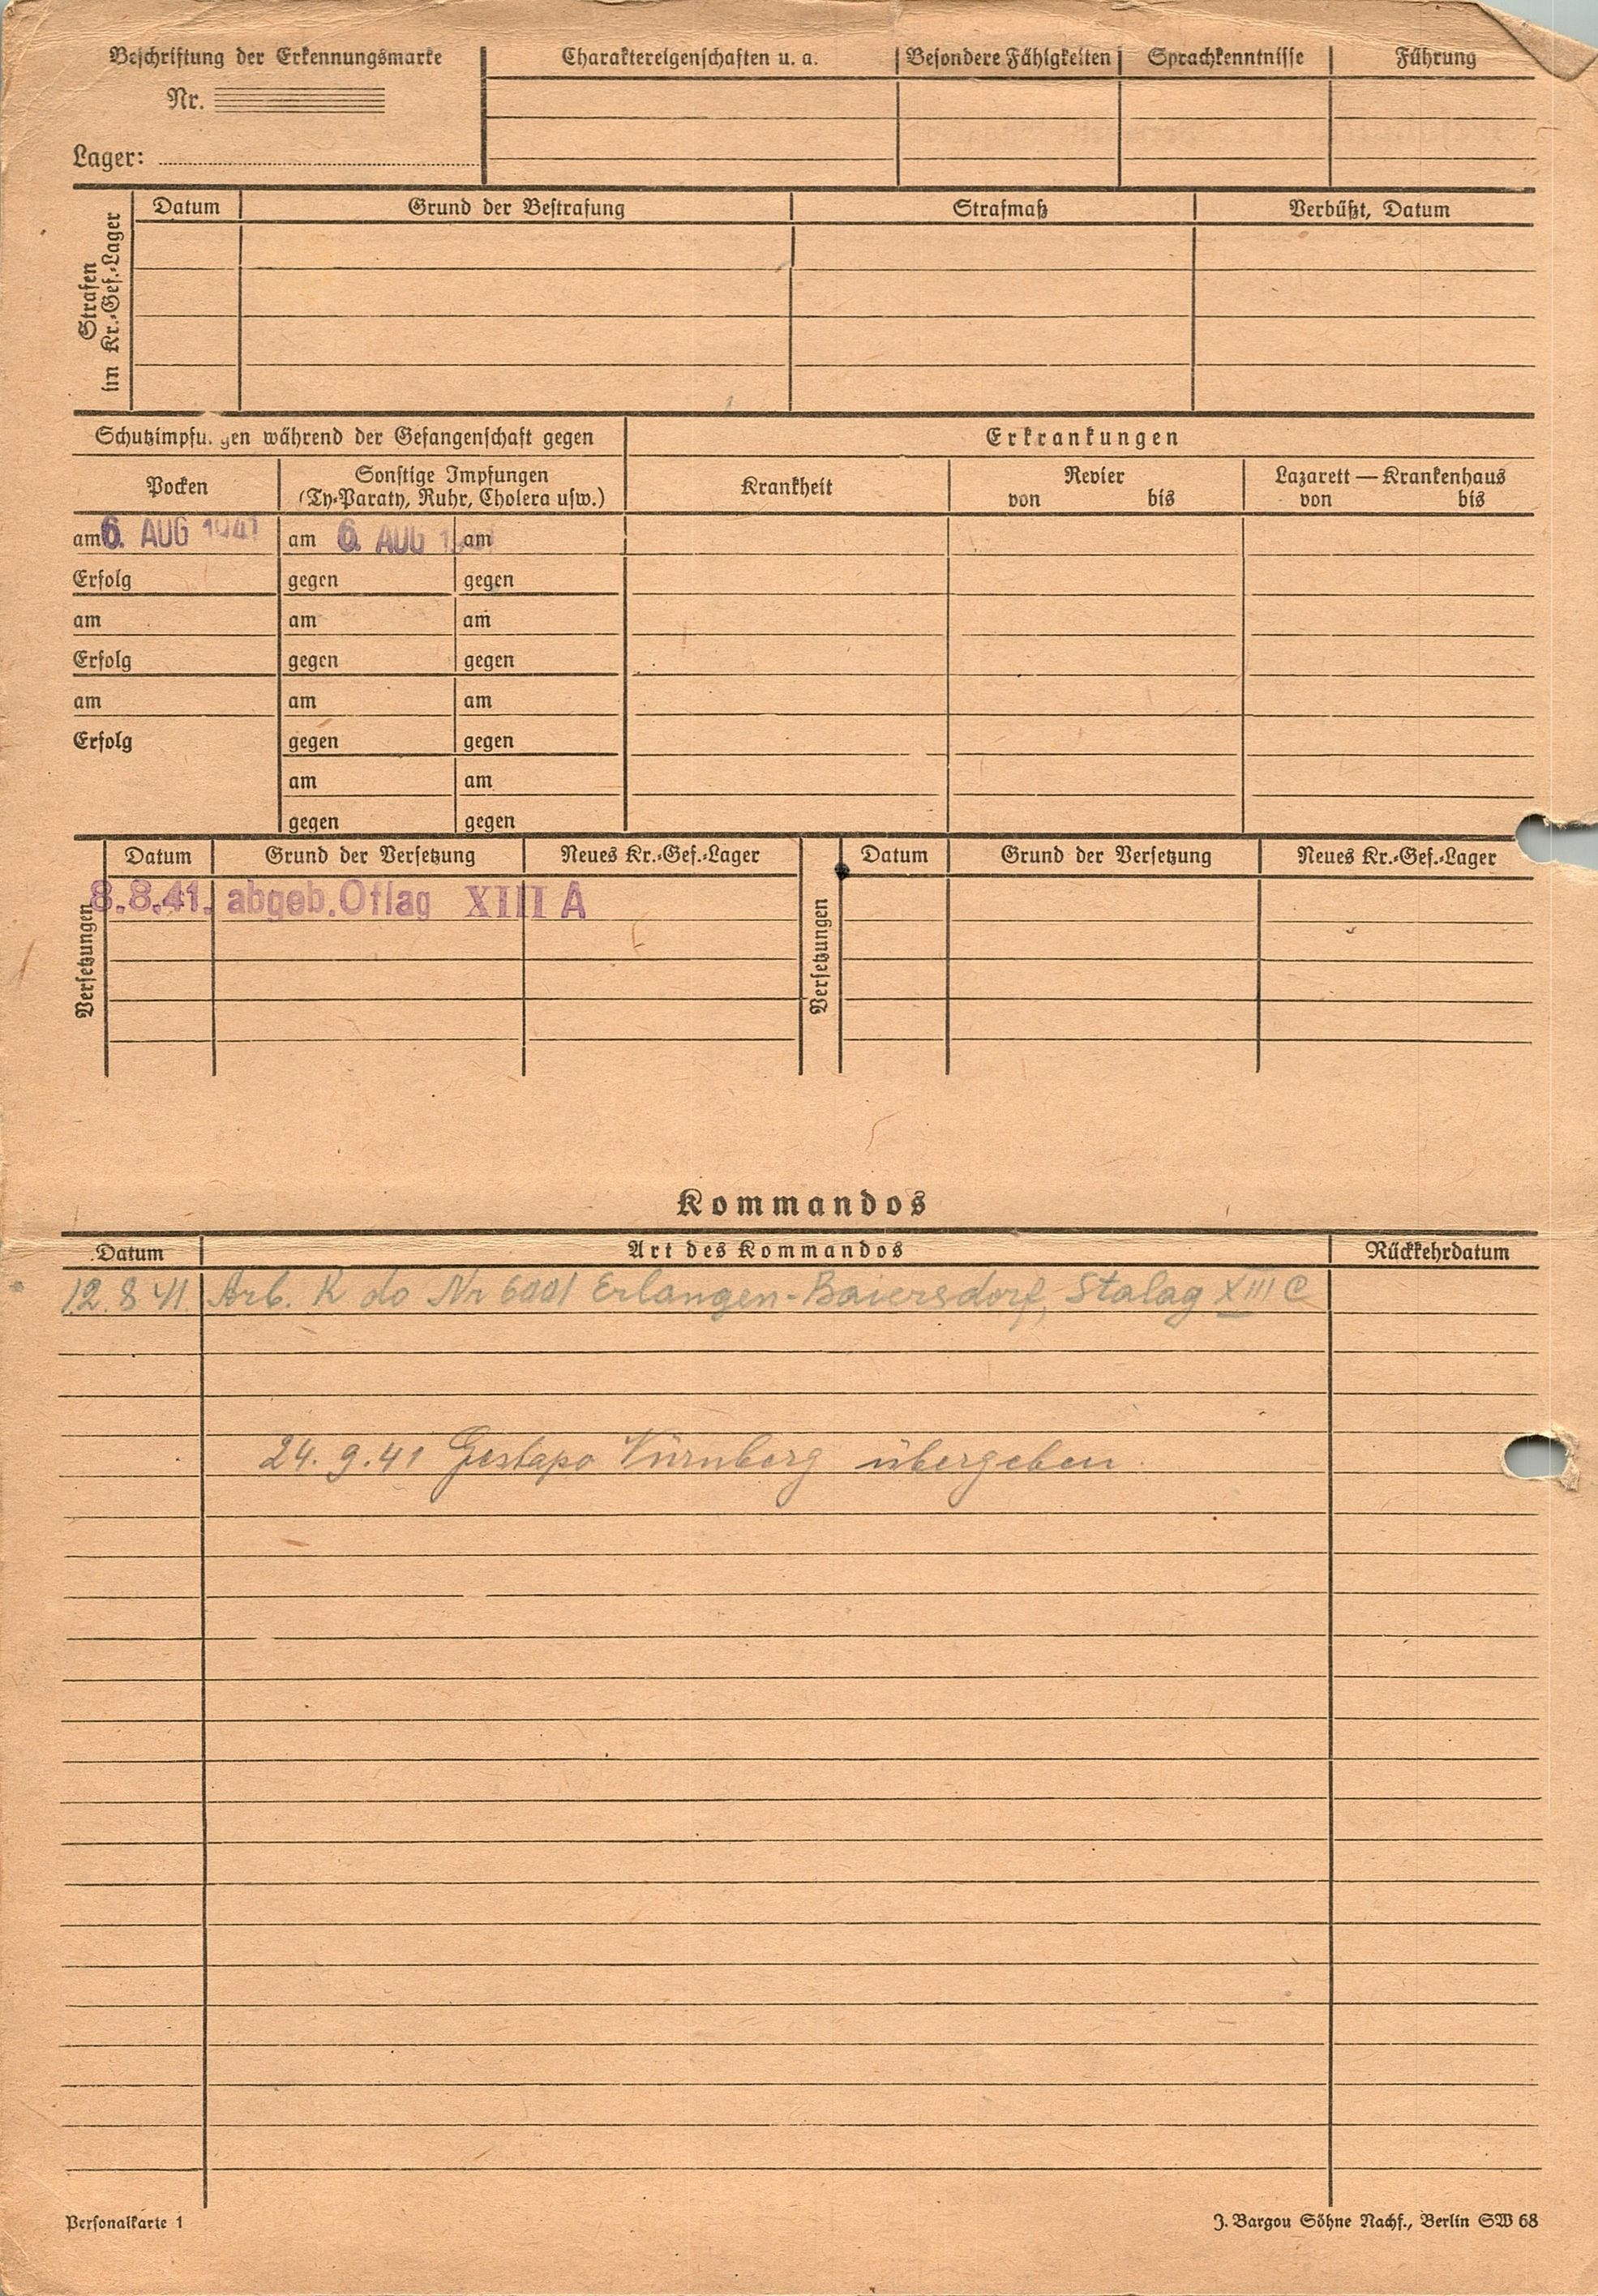 Beschriftung der Erkennungsmarke
Nr.
Lager:
Charaktereigenschaften u. a.
Besondere Fähigkeiten
Sprachkenntnisse
Führung
Strafen
im Kr.-Gef.-Lager
Datum
Grund der Bestrafung
Strafmaß
Verbüßt, Datum
Schutzimpfu. gen während der Gefangenschaft gegen
Erkrankungen
Pocken
Sonstige Impfungen
(Ty-Paraty, Ruhr, Cholera usw.)
Krankheit
Revier
von bis
Lazarett — Krankenhaus
von bis
am 6. AUG 1941 am 6. AUG 1941 am
Erfolg gegen gegen
am am am
Erfolg gegen gegen
am am am
Erfolg gegen gegen
am am
gegen gegen
Versetzungen
Datum Grund der Versetzung Neues Kr.-Gef.-Lager
8.8.41. abgeb. Oflag XIII A
Versetzungen
Datum Grund der Versetzung Neues Kr.-Gef.-Lager
Kommandos
Datum Art des Kommandos Rückkehrdatum
12.8.41 Arb. Kdo Nr 6001 Erlangen-Baiersdorf, Stalag XIII C
24.9.41 Gestapo Nürnberg übergeben
Personalkarte 1
J. Bargou Söhne Nachf., Berlin SW 68